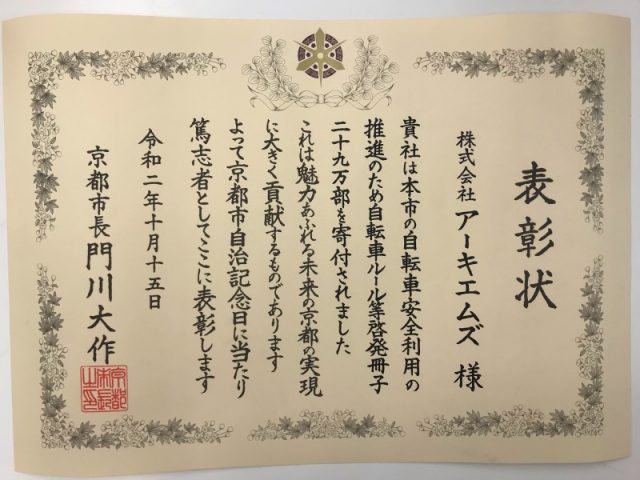 表彰状
株式会社 アーキエムズ 様
貴社は本市の自転車安全利用の
推進のため自転車ルール等啓発冊子
二十九万部を寄付されました
これは魅力あふれる未来の京都の実現
に大きく貢献するものであります
よって京都市自治記念日に当たり
篤志者としてここに表彰します
令和二年十月十五日
京都市長 門川大作